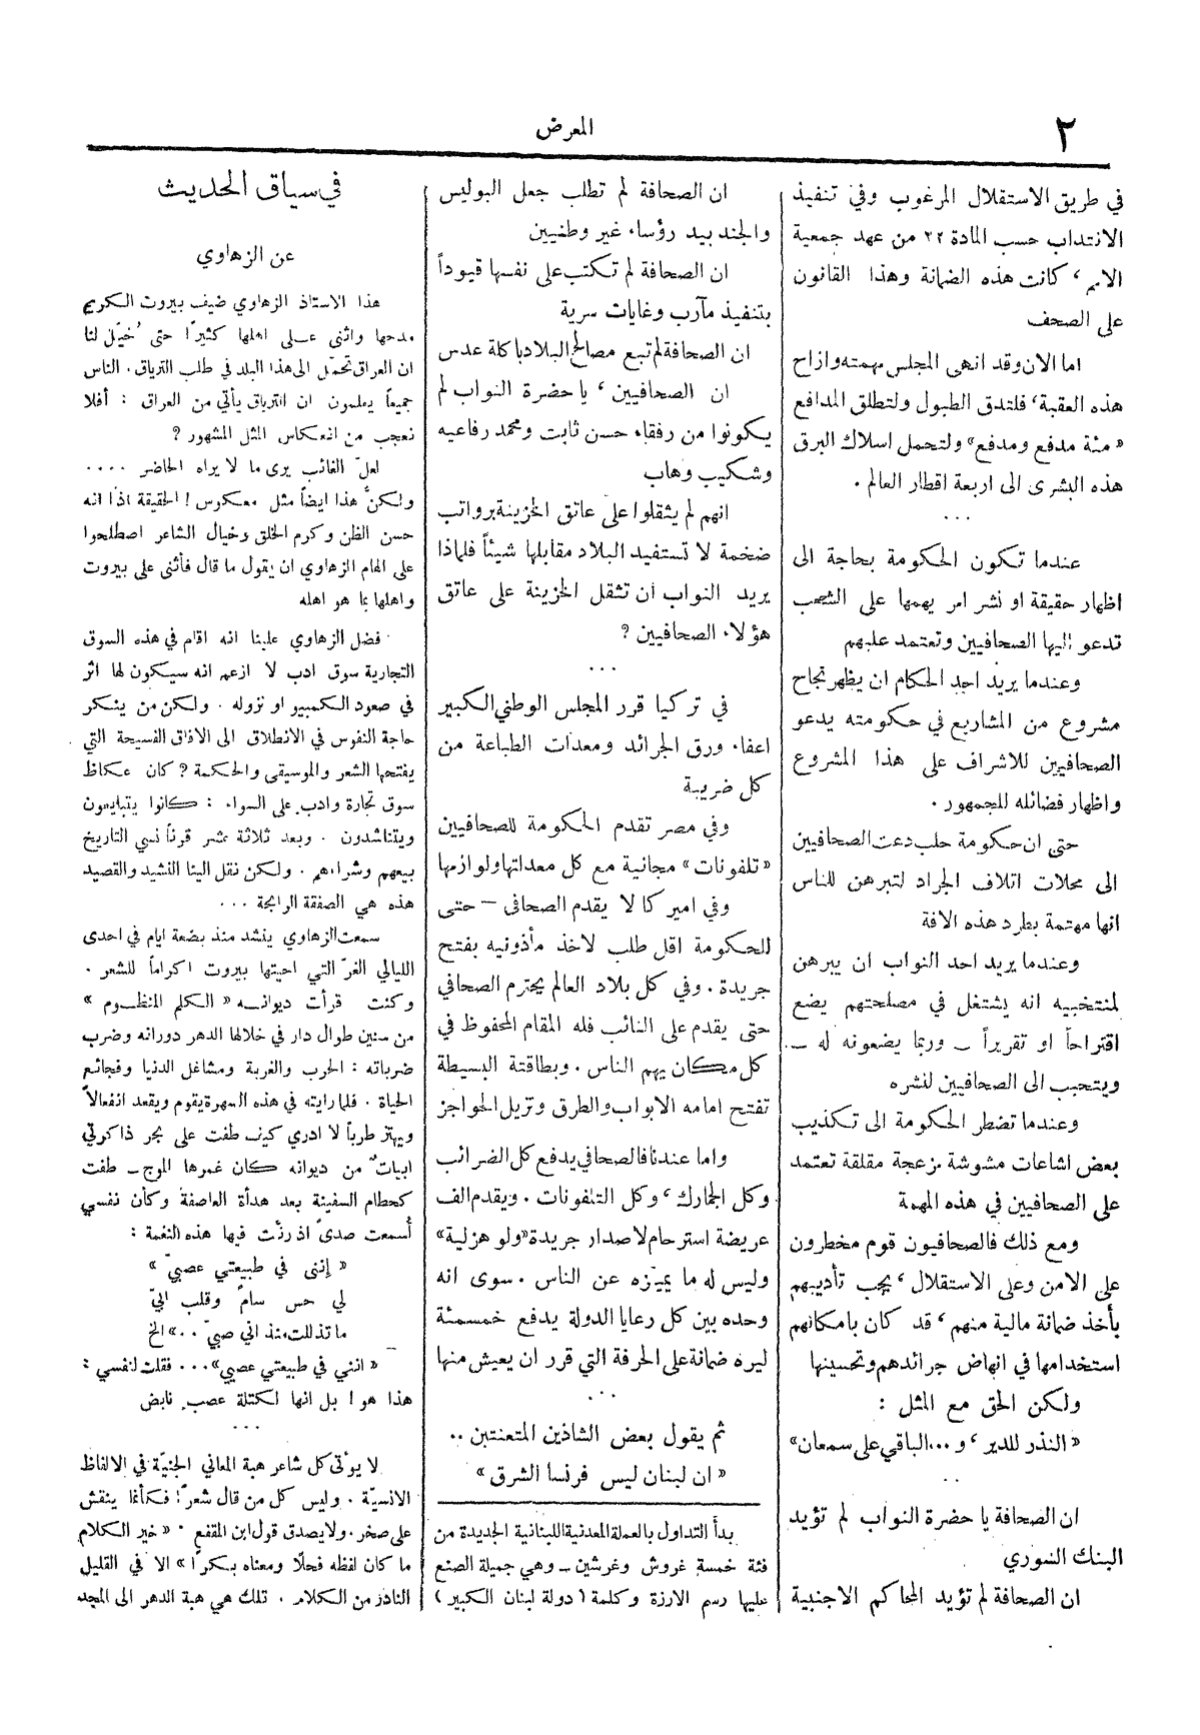 ٢
المعرض
في طريق الاستقلال المرغوب وفي تنفيذ
الانتداب حسب المادة ٢٢ من عهد جمعية
الامم ، كانت هذه الضمانة وهذا القانون
على الصحف
اما الان وقد انهى المجلس مهمته وازاح
هذه العقبة، فلتدق الطبول ولتطلق المدافع
« مئة مدفع ومدفع » ولتحمل اسلاك البرق
هذه البشرى الى اربعة اقطار العالم .
...
عندما تكون الحكومة بحاجة الى
اظهار حقيقة او نشر امر يهمها على الشعب
تدعو اليها الصحافيين وتعتمد عليهم
وعندما يريد احد الحكام ان يظهر نجاح
مشروع من المشاريع في حكومته يدعو
الصحافيين للاشراف على هذا المشروع
واظهار فضائله للجمهور .
حتى ان حكومة حلب دعت الصحافيين
الى محلات اتلاف الجراد لتبرهن للناس
انها مهتمة بطرد هذه الافة
وعندما يريد احد النواب ان يبرهن
لمنتخبيه انه يشتغل في مصلحتهم يضع
اقتراحاً او تقريراً ــ وربما يضعونه له ــ
ويتحبب الى الصحافيين لنشره
وعندما تضطر الحكومة الى تكذيب
بعض اشاعات مشوشة مزعجة مقلقة تعتمد
على الصحافيين في هذه المهمة
ومع ذلك فالصحافيون قوم مخطرون
على الامن وعلى الاستقلال ، يجب تأديبهم
بأخذ ضمانة مالية منهم ، قد كان بامكانهم
استخدامها في انهاض جرائدهم وتحسينها
ولكن الحق مع المثل :
« النذر للدير ، و ...الباقي على سمعان»
..
ان الصحافة يا حضرة النواب لم تؤيد
البنك السوري
ان الصحافة لم تؤيد المحاكم الاجنبية
ان الصحافة لم تطلب جعل البوليس
والجند بيد رؤساء غير وطنيين
ان الصحافة لم تكتب على نفسها قيوداً
بتنفيذ مآرب وغايات سرية
ان الصحافة لم تبع مصالح البلاد باكلة عدس
ان الصحافيين ، يا حضرة النواب لم
يكونوا من رفقاء حسن ثابت ومحمد رفاعيه
وشكيب وهاب
انهم لم يثقلوا على عاتق الخزينة برواتب
ضخمة لا تستفيد البلاد مقابلها شيئاً فلماذا
يريد النواب ان تثقل الخزينة على عاتق
هؤلاء الصحافيين ؟
...
في تركيا قرر المجلس الوطني الكبير
اعفاء ورق الجرائد ومعدات الطباعة من
كل ضريبة
وفي مصر تقدم الحكومة للصحافيين
«تلفونات» مجانية مع كل معداتها ولوازمها
وفي اميركا لا يقدم الصحافى – حتى
للحكومة اقل طلب لاخذ مأذونيه بفتح
جريدة . وفي كل بلاد العالم يحترم الصحافي
حتى يقدم على النائب فله المقام المحفوظ في
كل مكان يهم الناس . وبطاقتة البسيطة
تفتح امامه الابواب والطرق وتزيل الحواجز
واما عندنا فالصحافي يدفع كل الضرائب
وكل الجمارك ، وكل التلفونات . ويقدم الف
عريضة استرحام لاصدار جريدة «ولو هزلية»
وليس له ما يميّزه عن الناس . سوى انه
وحده بين كل رعايا الدولة يدفع خمسمئة
ليره ضمانة على الحرفة التي قرر ان يعيش منها
...
ثم يقول بعض الشاذين المتعنتين ..
« ان لبنان ليس فرنسا الشرق »
بدأ التداول بالعملة المعدنية اللبنانية الجديدة من
فئة خمسة غروش وغرشين ــ وهي جميلة الصنع
عليها رسم الارزة وكلمة ( دولة لبنان الكبير )
في سياق الحديث
عن الزهاوي
هذا الاستاذ الزهاوي ضيف بيروت الكريم
مدحها واثنى عـلى اهلها كثيرًا حتى خُيّل لنا
ان العراق تحمّل الى هذا البلد في طلب الترياق . الناس
جميعاً يعلمون ان الترياق يأتي من العراق : أفلا
نعجب من انعكاس المثل المشهور ؟
لعلّ الغائب يرى ما لا يراه الحاضر ....
ولكنّ هذا ايضاً مثل معكوس ! الحقيقة اذا انه
حسن الظن وكرم الخلق وخيال الشاعر اصطلحوا
على الهام الزهاوي ان يقول ما قال فأثنى على بيروت
واهلها بما هو اهله
فضل الزهاوي علينا انه اقام في هذه السوق
التجارية سوق ادب لا ازعم انه سيكون لها اثر
في صعود الكمبيو او نزوله . ولكن من ينكر
حاجة النفوس في الانطلاق الى الافاق الفسيحة التي
يفتحها الشعر والموسيقى والحكمة ؟ كان عكاظ
سوق تجارة وادب على السواء : كانوا يتبايعون
ويتناشدون . وبعد ثلاثة عشر قرناً نسي التاريخ
بيعهم وشراءهم . ولكن نقل الينا النشيد والقصيد
هذه هي الصفقة الرابحة ...
سمعت الزهاوي ينشد منذ بضعة ايام في احدى
الليالي الغرّ التي احيتها بيروت اكراماً للشعر .
وكنت قرأت ديوانـه « الكلم المنظـوم »
من سنين طوال دار في خلالها الدهر دورانه وضرب
ضرباته : الحرب والغربة ومشاغل الدنيا وفجائـع
الحياة . فلما رايته في هذه السهرة يقوم ويقعد انفعالاً
ويهتز طرباً لا ادري كيف طفت على بحر ذاكرتي
ابياتٌ من ديوانه كان غمرها الموج ــ طفت
كحطام السفينة بعد هدأة العاصفة وكأن نفسي
أسمعت صدىً اذ رنّت فيها هذه النغمة :
« إننى في طبيعتي عصبيّ »
لي حس سامٍ وقلب ابيّ
ما تذللت منذ اني صبيّ ..» الخ
« انني في طبيعتي عصبي»... فقلت لنفسي :
هذا هو ! بل انها لكتلة عصبٍ نابض
...
لا يؤتى كل شاعر هبة المعاني الجنيّة في الالفاظ
الانسيّة . وليس كل من قال شعرًا فكأنما ينقش
على صخر . ولا يصدق قول ابن المقفع . « خير الكلام
ما كان لفظه فحلًا ومعناه بكرًا » الا في القليل
النادر من الكلام . تلك هي هبة الدهر الى المجد